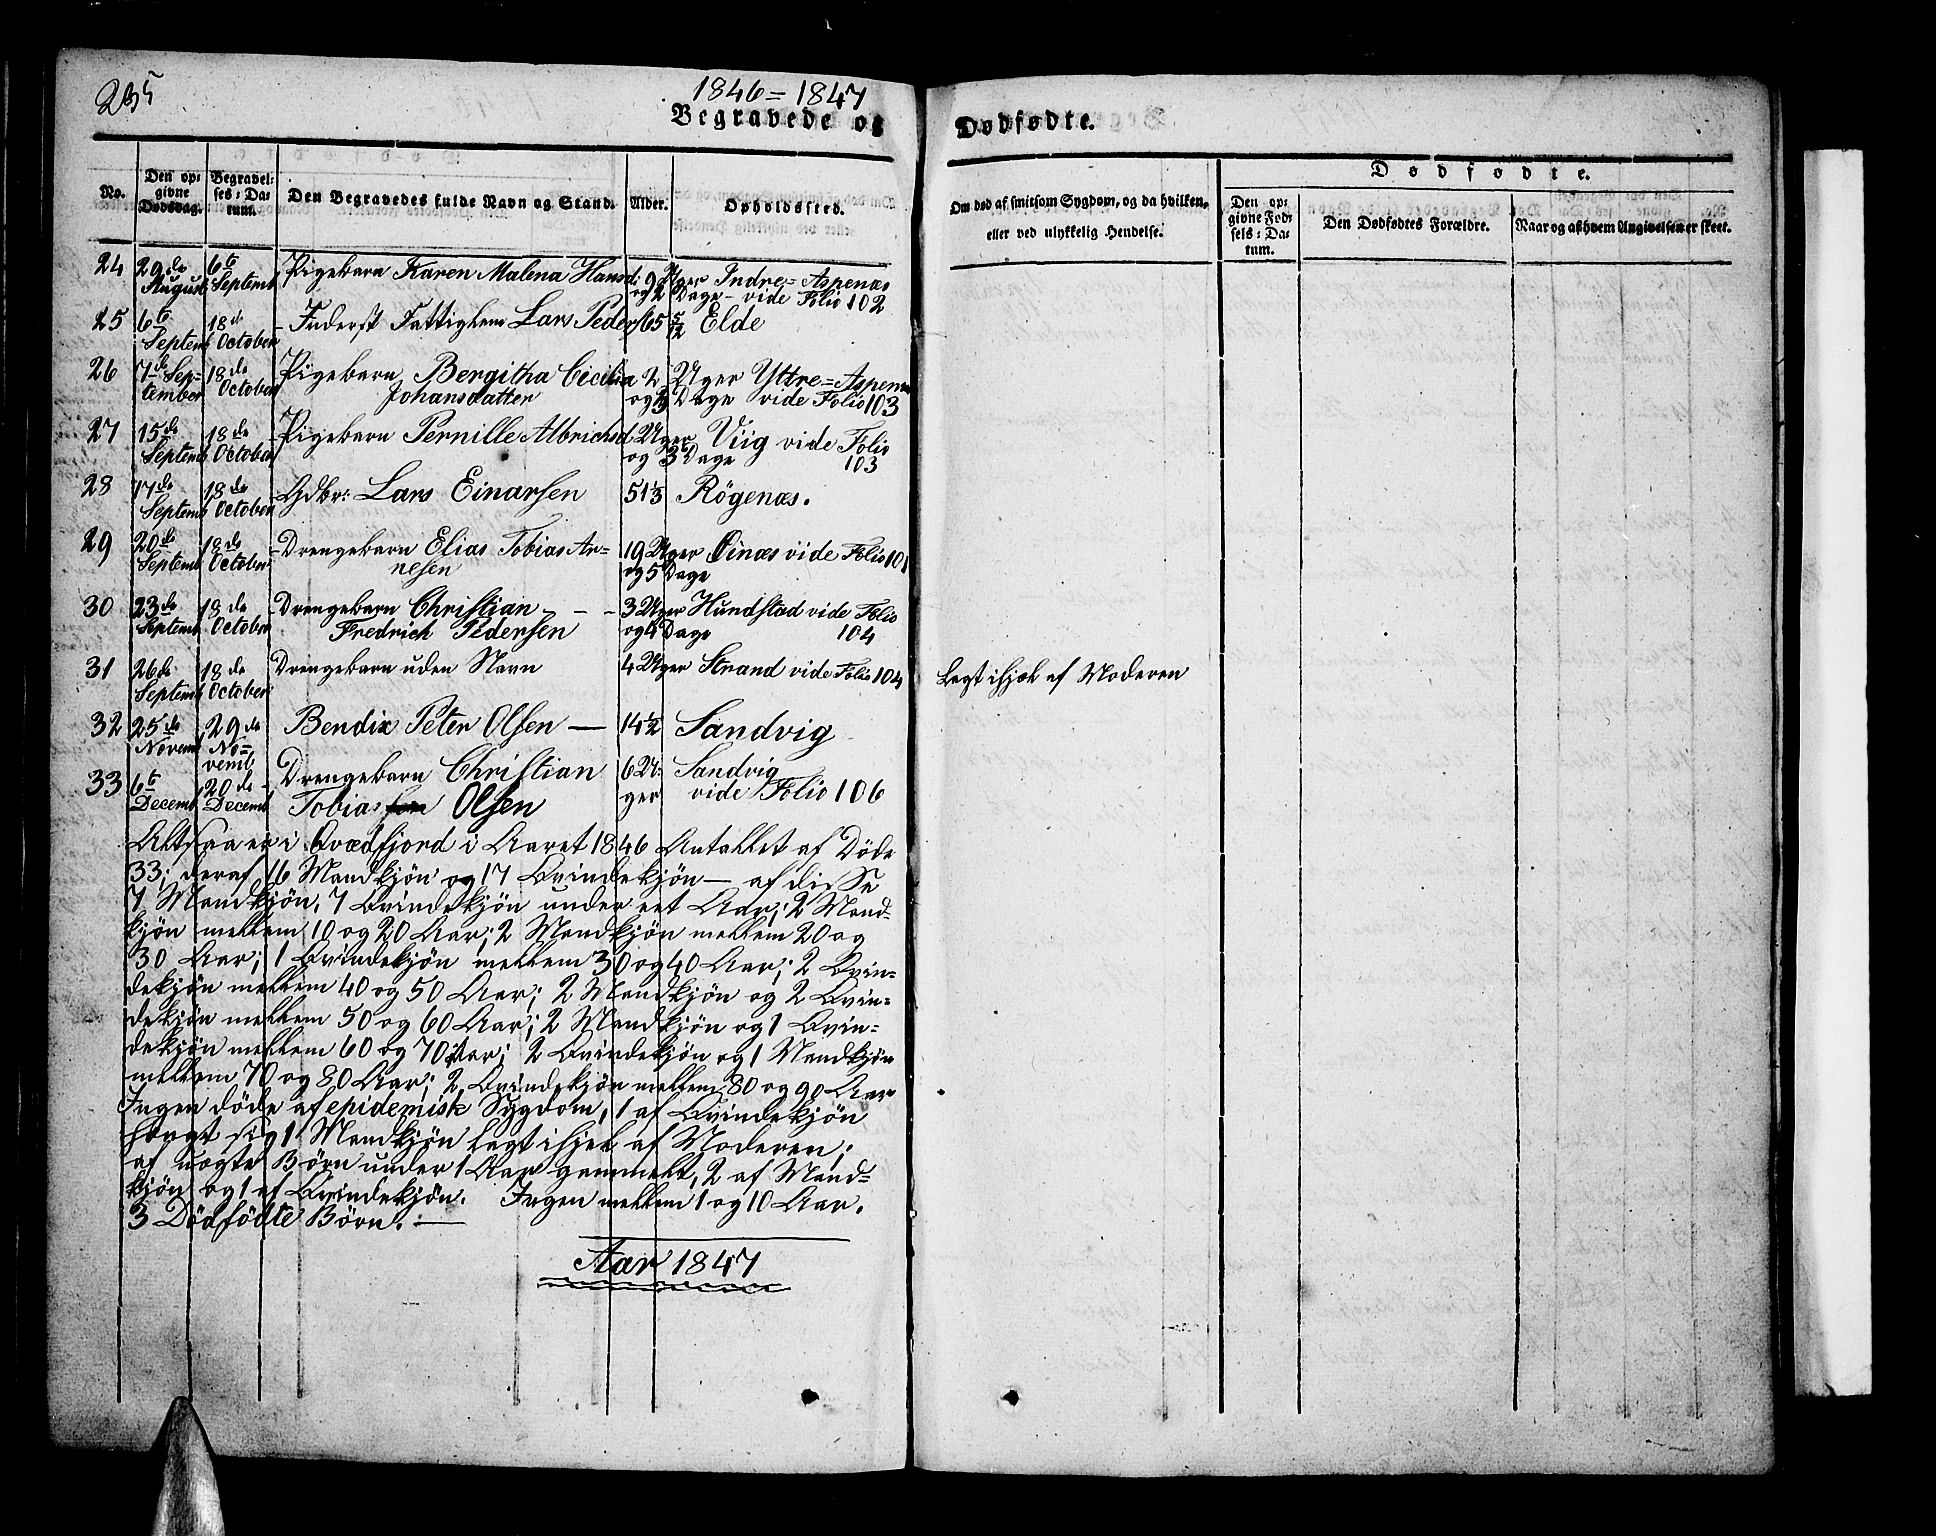 285
1846=1847
Begravede og Dødfødte.
No. Den op: givne Dødsdag. Begravel: ses: Da: tum. Den Begravedes fulde Navn og Stand. Alder. Opholdssted. Om død af smitsom Sygdom, og da hvilken, eller ved ulykkelig Hendelse.
Dødfødte.
Den op: givne Fød: sels: Da: tum. Den Dødfødtes Forældre. Naar og af hvem Angivelsen er skeet.
24 29de August 6te Septemb Pigebarn Karen Malena Hansd: 9 Uger og 2 Dage Indre=Aspenæs vide Folio 102
25 6te Septemb 18de October Inderst Fattiglem Lars Peders 65 5/12 Elde
26 7de September 18de October Pigebarn Bergitha Cicilia 2 Uger Yttre=Aspenæs
Johansdatter og 3 Dage vide Folio 103
27 15de Septemb 18de October Pigebarn Pernille Albrichsd 1 Uger og 3 Dage Viig vide Folio 103
28 17de Septemb 18de October Gdbr: Lars Einarsen 51 1/3 Røgenæs.
29 20de Septemb 18de October Drengebarn Elias Tobias Ar=
nesen 19 Uger og 5 Dage Oinæs vide Folio 101
30 23de Septemb 18de October Drengebarn Christian
Fredrich Pedersen 3 Uger og 4 Dage Hundstad vide Folio 104
31 26de Septemb 18de October Drengebarn uden Navn 4 Uger Strand vide Folio 104 Lagt ihjæl af Moderen
32 25de Novemb 29de No=vemb Bendix Peter Olsen — 14 1/2 Sandvig
33 6te Decemb 20de Decemb Drengebarn Christian
Tobias Olsen 6 U: ger Sandvig vide Folio 106
Altsaa er i Qvædfjord i Aaret 1846 Antallet af Døde
33; deraf 16 Mandkjøn og 17 Qvindekjøn — af disse
7 Mandkjøn, 7 Qvindekjøn under eet Aar; 2 Mand=
kjøn mellem 10 og 20 Aar; 2 Mandkjøn mellem 20 og
30 Aar; 1 Qvindekjøn mellem 30 og 40 Aar; 2 Qvin=
dekjøn mellem 40 og 50 Aar; 2 Mandkjøn og 2 Qvin=
dekjøn mellem 50 og 60 Aar; 2 Mandkjøn og 1 Qvin=
dekjøn mellem 60 og 70 Aar; 2 Qvindekjøn og 1 Mandkjøn
mellem 70 og 80 Aar; 2 Qvindekjøn mellem 80 og 90 Aar
Ingen døde af epidemisk Sygdom, 1 af Qvindekjøn
hængt sig 1 Mandkjøn lagt ihjel af Moderen;
af uægte Børn under 1 Aar gammelt, 2 af Mand=
kjøn og 1 af Qvindekjøn. Ingen mellem 1 og 10 Aar.
3 Dødfødte Børn.
Aar 1847